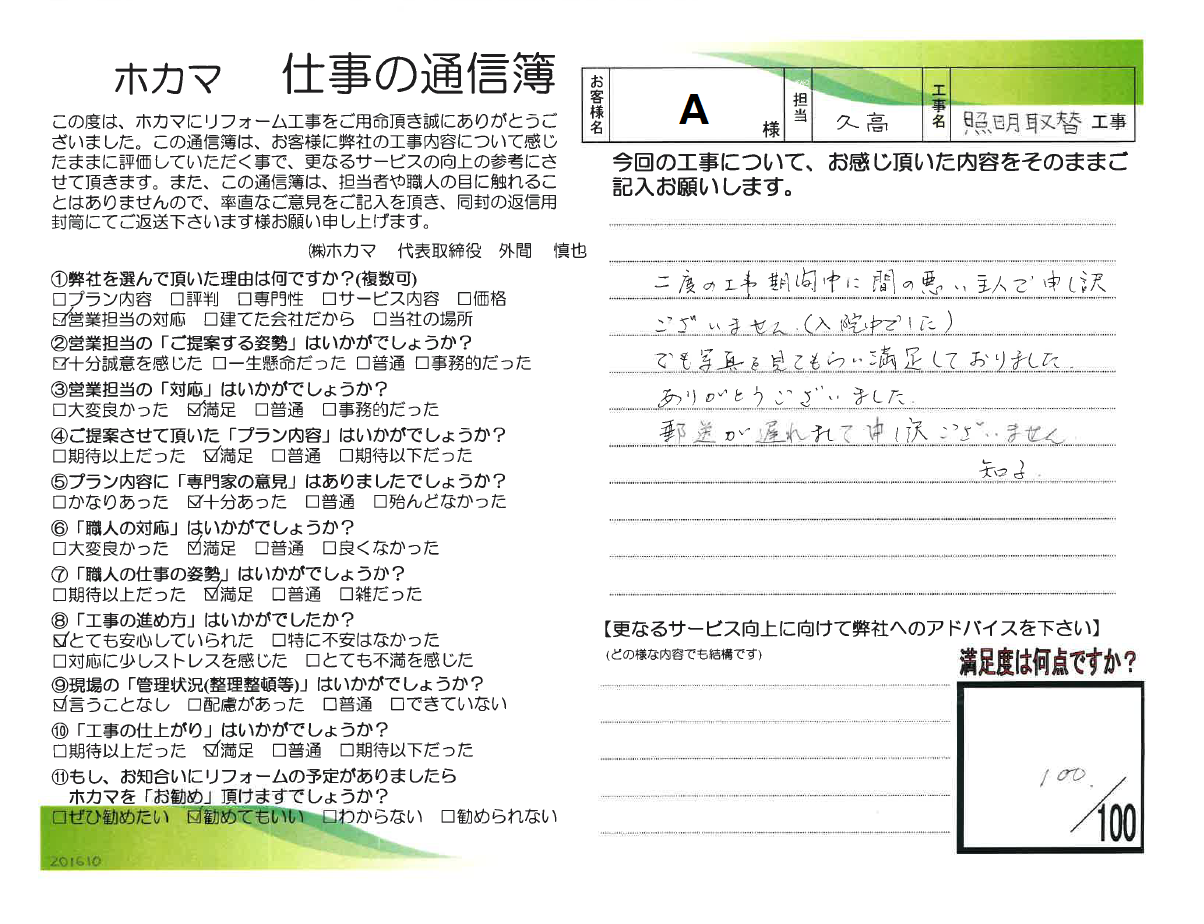 ホカマ 仕事の通信簿
この度は、ホカマにリフォーム工事をご用命頂き誠にありがとうご
ざいました。この通信簿は、お客様に弊社の工事内容について感じ
たままに評価していただく事で、更なるサービスの向上の参考にさ
せて頂きます。また、この通信簿は、担当者や職人の目に触れるこ
とはありませんので、率直なご意見をご記入を頂き、同封の返信用
封筒にてご返送下さいます様お願い申し上げます。
㈱ホカマ 代表取締役 外間 慎也
①弊社を選んで頂いた理由は何ですか?(複数可)
□プラン内容 □評判 □専門性 □サービス内容 □価格
☑営業担当の対応 □建てた会社だから □当社の場所
②営業担当の「ご提案する姿勢」はいかがでしょうか?
☑十分誠意を感じた □一生懸命だった □普通 □事務的だった
③営業担当の「対応」はいかがでしょうか?
□大変良かった ☑満足 □普通 □事務的だった
④ご提案させて頂いた「プラン内容」はいかがでしょうか?
□期待以上だった ☑満足 □普通 □期待以下だった
⑤プラン内容に「専門家の意見」はありましたでしょうか?
□かなりあった ☑十分あった □普通 □殆んどなかった
⑥「職人の対応」はいかがでしょうか?
□大変良かった ☑満足 □普通 □良くなかった
⑦「職人の仕事の姿勢」はいかがでしょうか?
□期待以上だった ☑満足 □普通 □雑だった
⑧「工事の進め方」はいかがでしたか?
☑とても安心していられた □特に不安はなかった
□対応に少しストレスを感じた □とても不満を感じた
⑨現場の「管理状況(整理整頓等)」はいかがでしょうか?
☑言うことなし □配慮があった □普通 □できていない
⑩「工事の仕上がり」はいかがでしょうか?
□期待以上だった ☑満足 □普通 □期待以下だった
⑪もし、お知合いにリフォームの予定がありましたら
ホカマを「お勧め」頂けますでしょうか?
□ぜひ勧めたい ☑勧めてもいい □わからない □勧められない
201610
お客様名 A 様 担当 久高 工事名 照明取替 工事
今回の工事について、お感じ頂いた内容をそのままご
記入お願いします。
二度の工事期間中に間の悪い主人で申し訳
ございません(入院中でした)
でも写真を見てもらい満足しておりました.
ありがとうございました.
郵送が遅れまして申し訳ございません
知子.
【更なるサービス向上に向けて弊社へのアドバイスを下さい】
(どの様な内容でも結構です)
満足度は何点ですか?
100.
/100